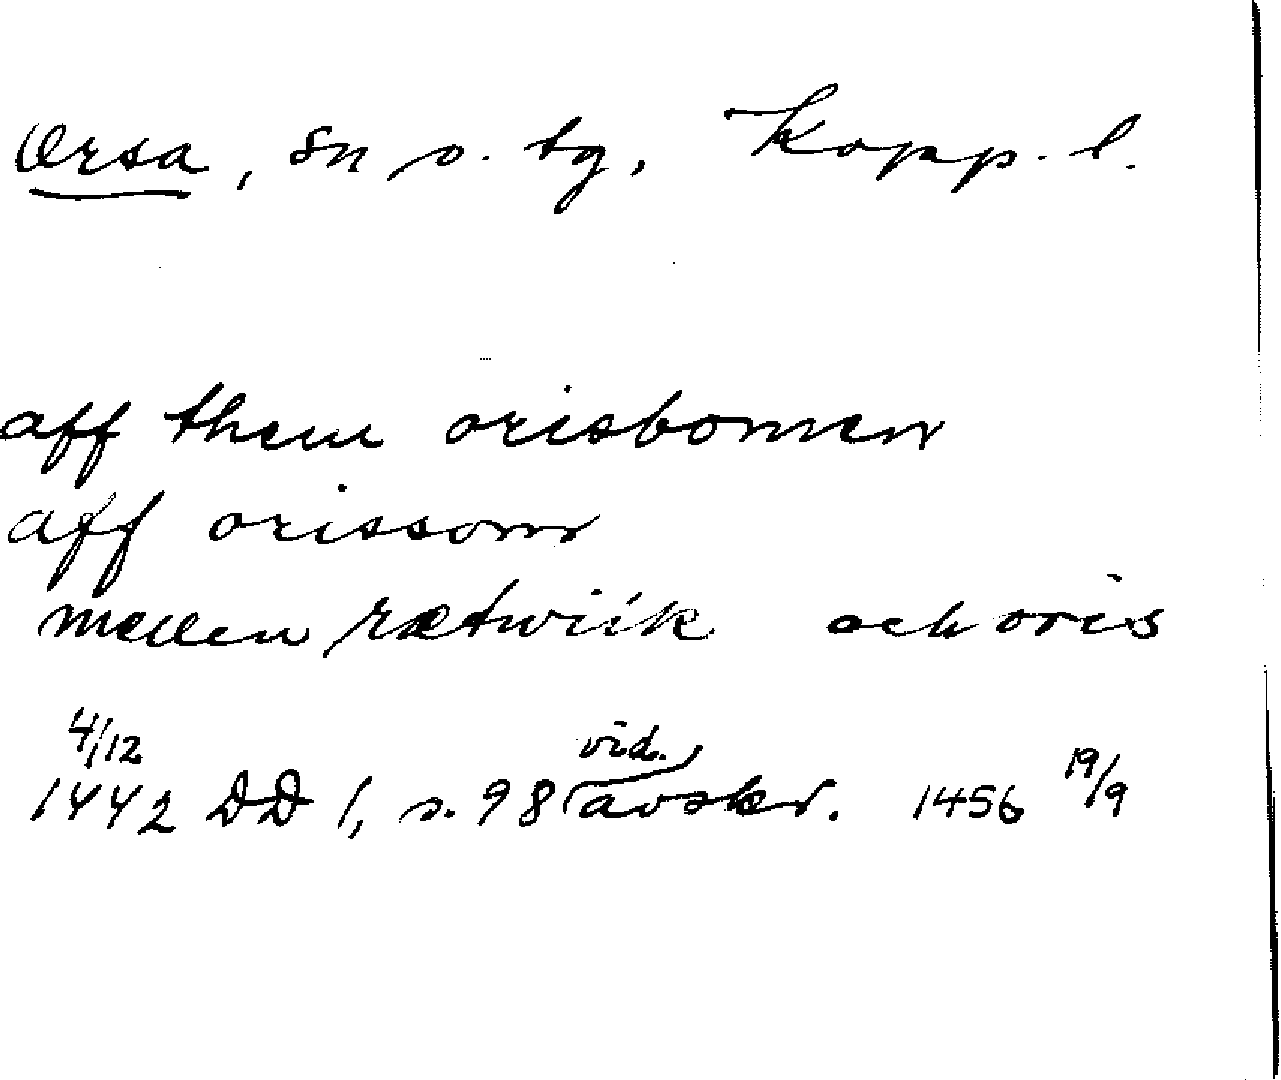 Orsa, sn o. tg, Kopp. l.
aff them orisbomen
aff orissom
mellen rætwiik och oris
4/12 vid.
1442 DD 1, s. 98 (avskr. 1456 19/9